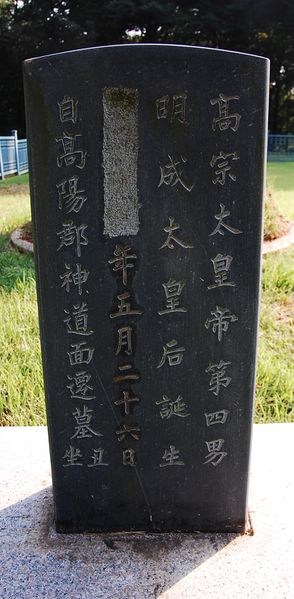 高宗太皇帝第四男
明成太皇后誕生
年五月二十六日
自高陽郡神道面遷墓丑坐